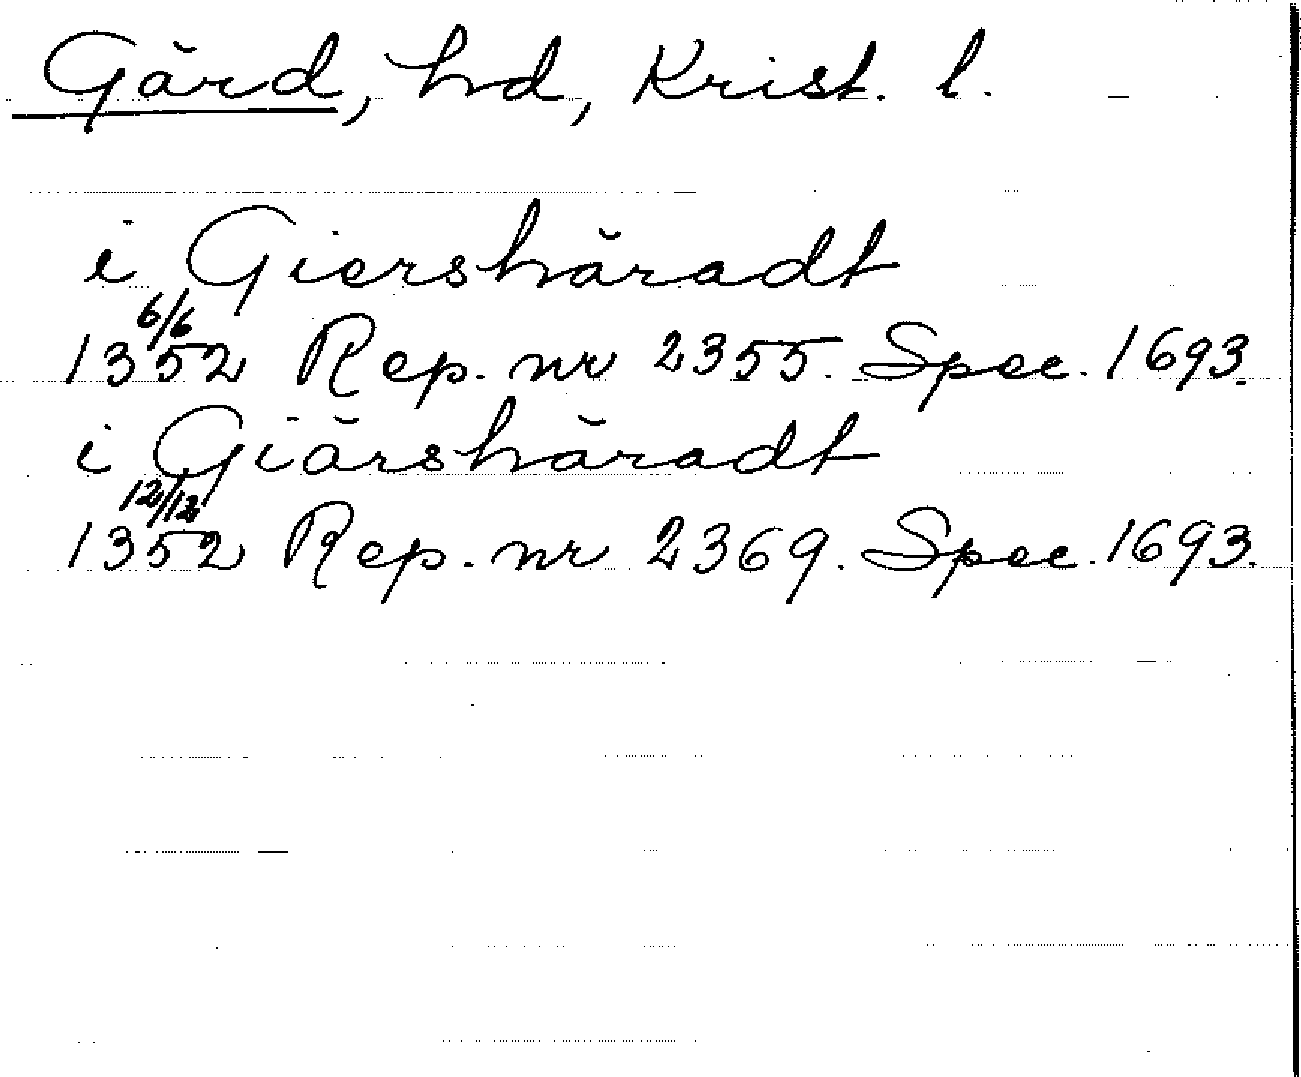 Gärd, hd, Krist. l.
i Giershäradt
6/6
1352 Rep. nr 2355. Spec. 1693.
i Giärshäradt
12/12
1352 Rep. nr 2369. Spec. 1693.